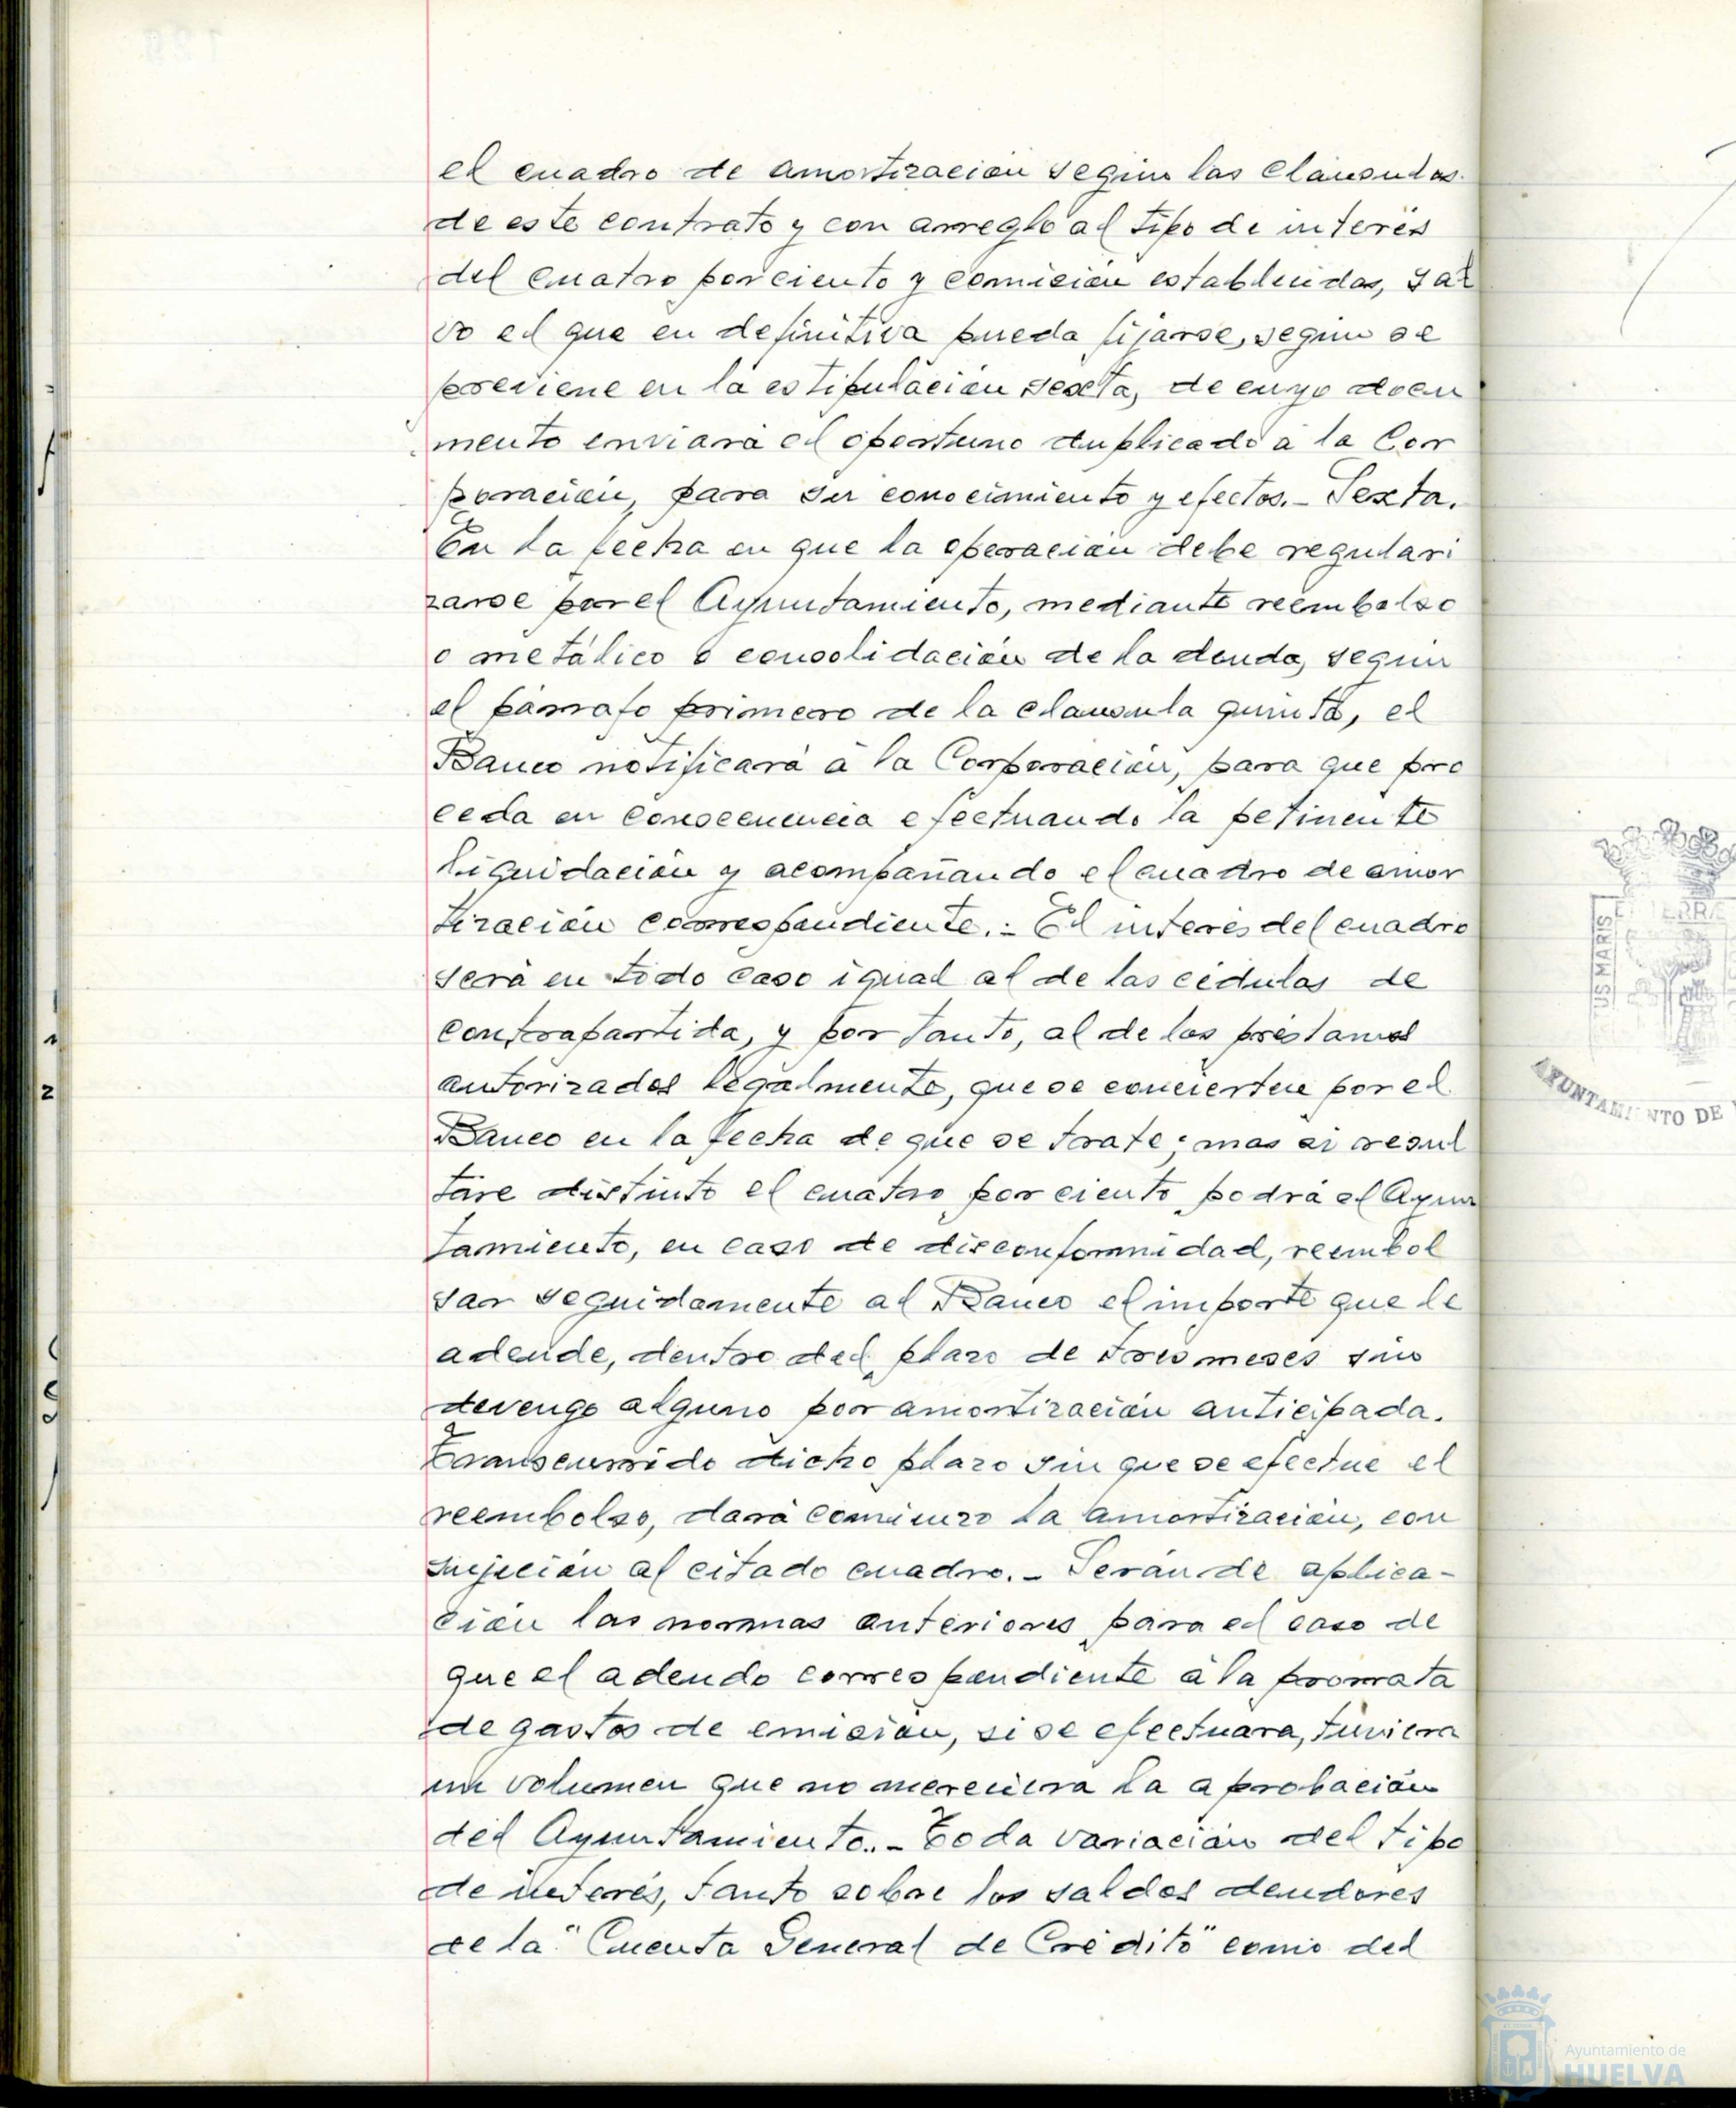 el cuadro de amortización según las cláusulas
de este contrato y con arreglo al tipo de interés
del cuatro por ciento y comisión establecidas, sal
vo el que en definitiva pueda fijarse, según se
previene en la estipulación sexta, de cuyo docu
mento enviará el oportuno duplicado a la Cor
poración, para su conocimiento y efectos.- Sexta.
En la fecha en que la operación debe regulari
zarse por el Ayuntamiento, mediante reembolso
o metálico o consolidación de la deuda, según
el párrafo primero de la clausula quinta, el
Banco notificará a la Corporación, para que pro
ceda en consecuencia efectuando la petinente
liquidación y acompañando el cuadro de amor
tización correspondiente.- El interés del cuadro
será en todo caso igual al de las cédulas de
contrapartida, y por tanto, al de los préstamos
autorizados legalmente, que se concierten por el
Banco en la fecha de que se trate; mas si resul
tare distinto el cuatro por ciento podrá el Ayun
tamiento, en caso de disconformidad, reembol
sar seguidamente al Banco el importe que le
adeude, dentro del plazo de tres meses sin
devengo alguno por amortización anticipada.
Transcurrido dicho plazo sin que se efectue el
reembolso, dará comienzo la amortización, con
sujeción al citado cuadro.- Serán de aplica-
ción las normas anteriores para el caso de
que el adeudo correspondiente a la prorrata
de gastos de emisión, si se efectuara, tuviera
un volumen que no mereciera la aprobación
del Ayuntamiento.- Toda variación del tipo
de interés, tanto sobre los saldos deudores
de la "Cuenta General de Crédito" como del
US MARIS
AYUNTAMIENTO DE
Ayuntamiento de
HUELVA